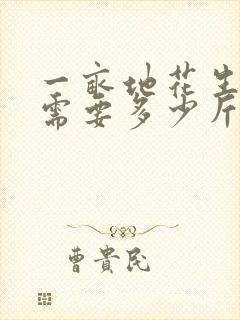 一亩地花生
需要多少斤
曹貴民